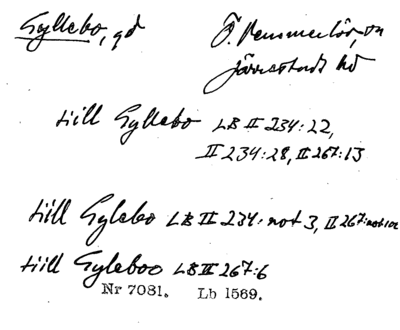 Gyllebo, gd Ö. Vemmerlöv sn
Järrestads hd
tiill Gyllebo LB II 234:22,
II 234:28, II 267:13
tiill Gylebo LB II 234: not 3, II 267: not
tiill Gyleboo LB II 267:6
Nr 7081. Lb 1569.